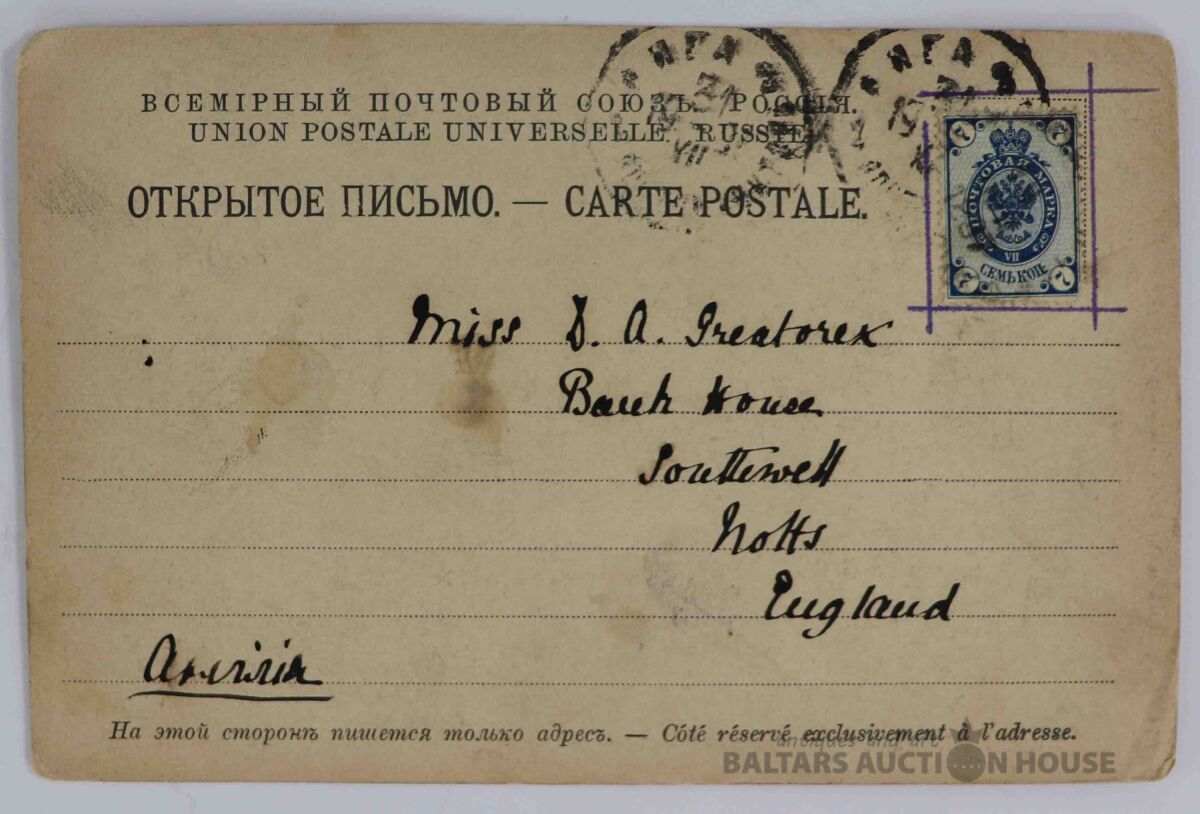 ВСЕМІРНЫЙ ПОЧТОВЫЙ СОЮЗЪ. РОССІЯ.
UNION POSTALE UNIVERSELLE. RUSSIE.
ОТКРЫТОЕ ПИСЬМО. — CARTE POSTALE.
РИГА
РИГА
7 7
ПОЧТОВАЯ МАРКА
VII
СЕМЬ КОП.
7 7
Miss D. A. Greatorex
Bank House
Southwell
Notts
England
Англія
На этой сторонѣ пишется только адресъ. — Côté réservé exclusivement à l'adresse.
antiques and art
BALTARS AUCTION HOUSE